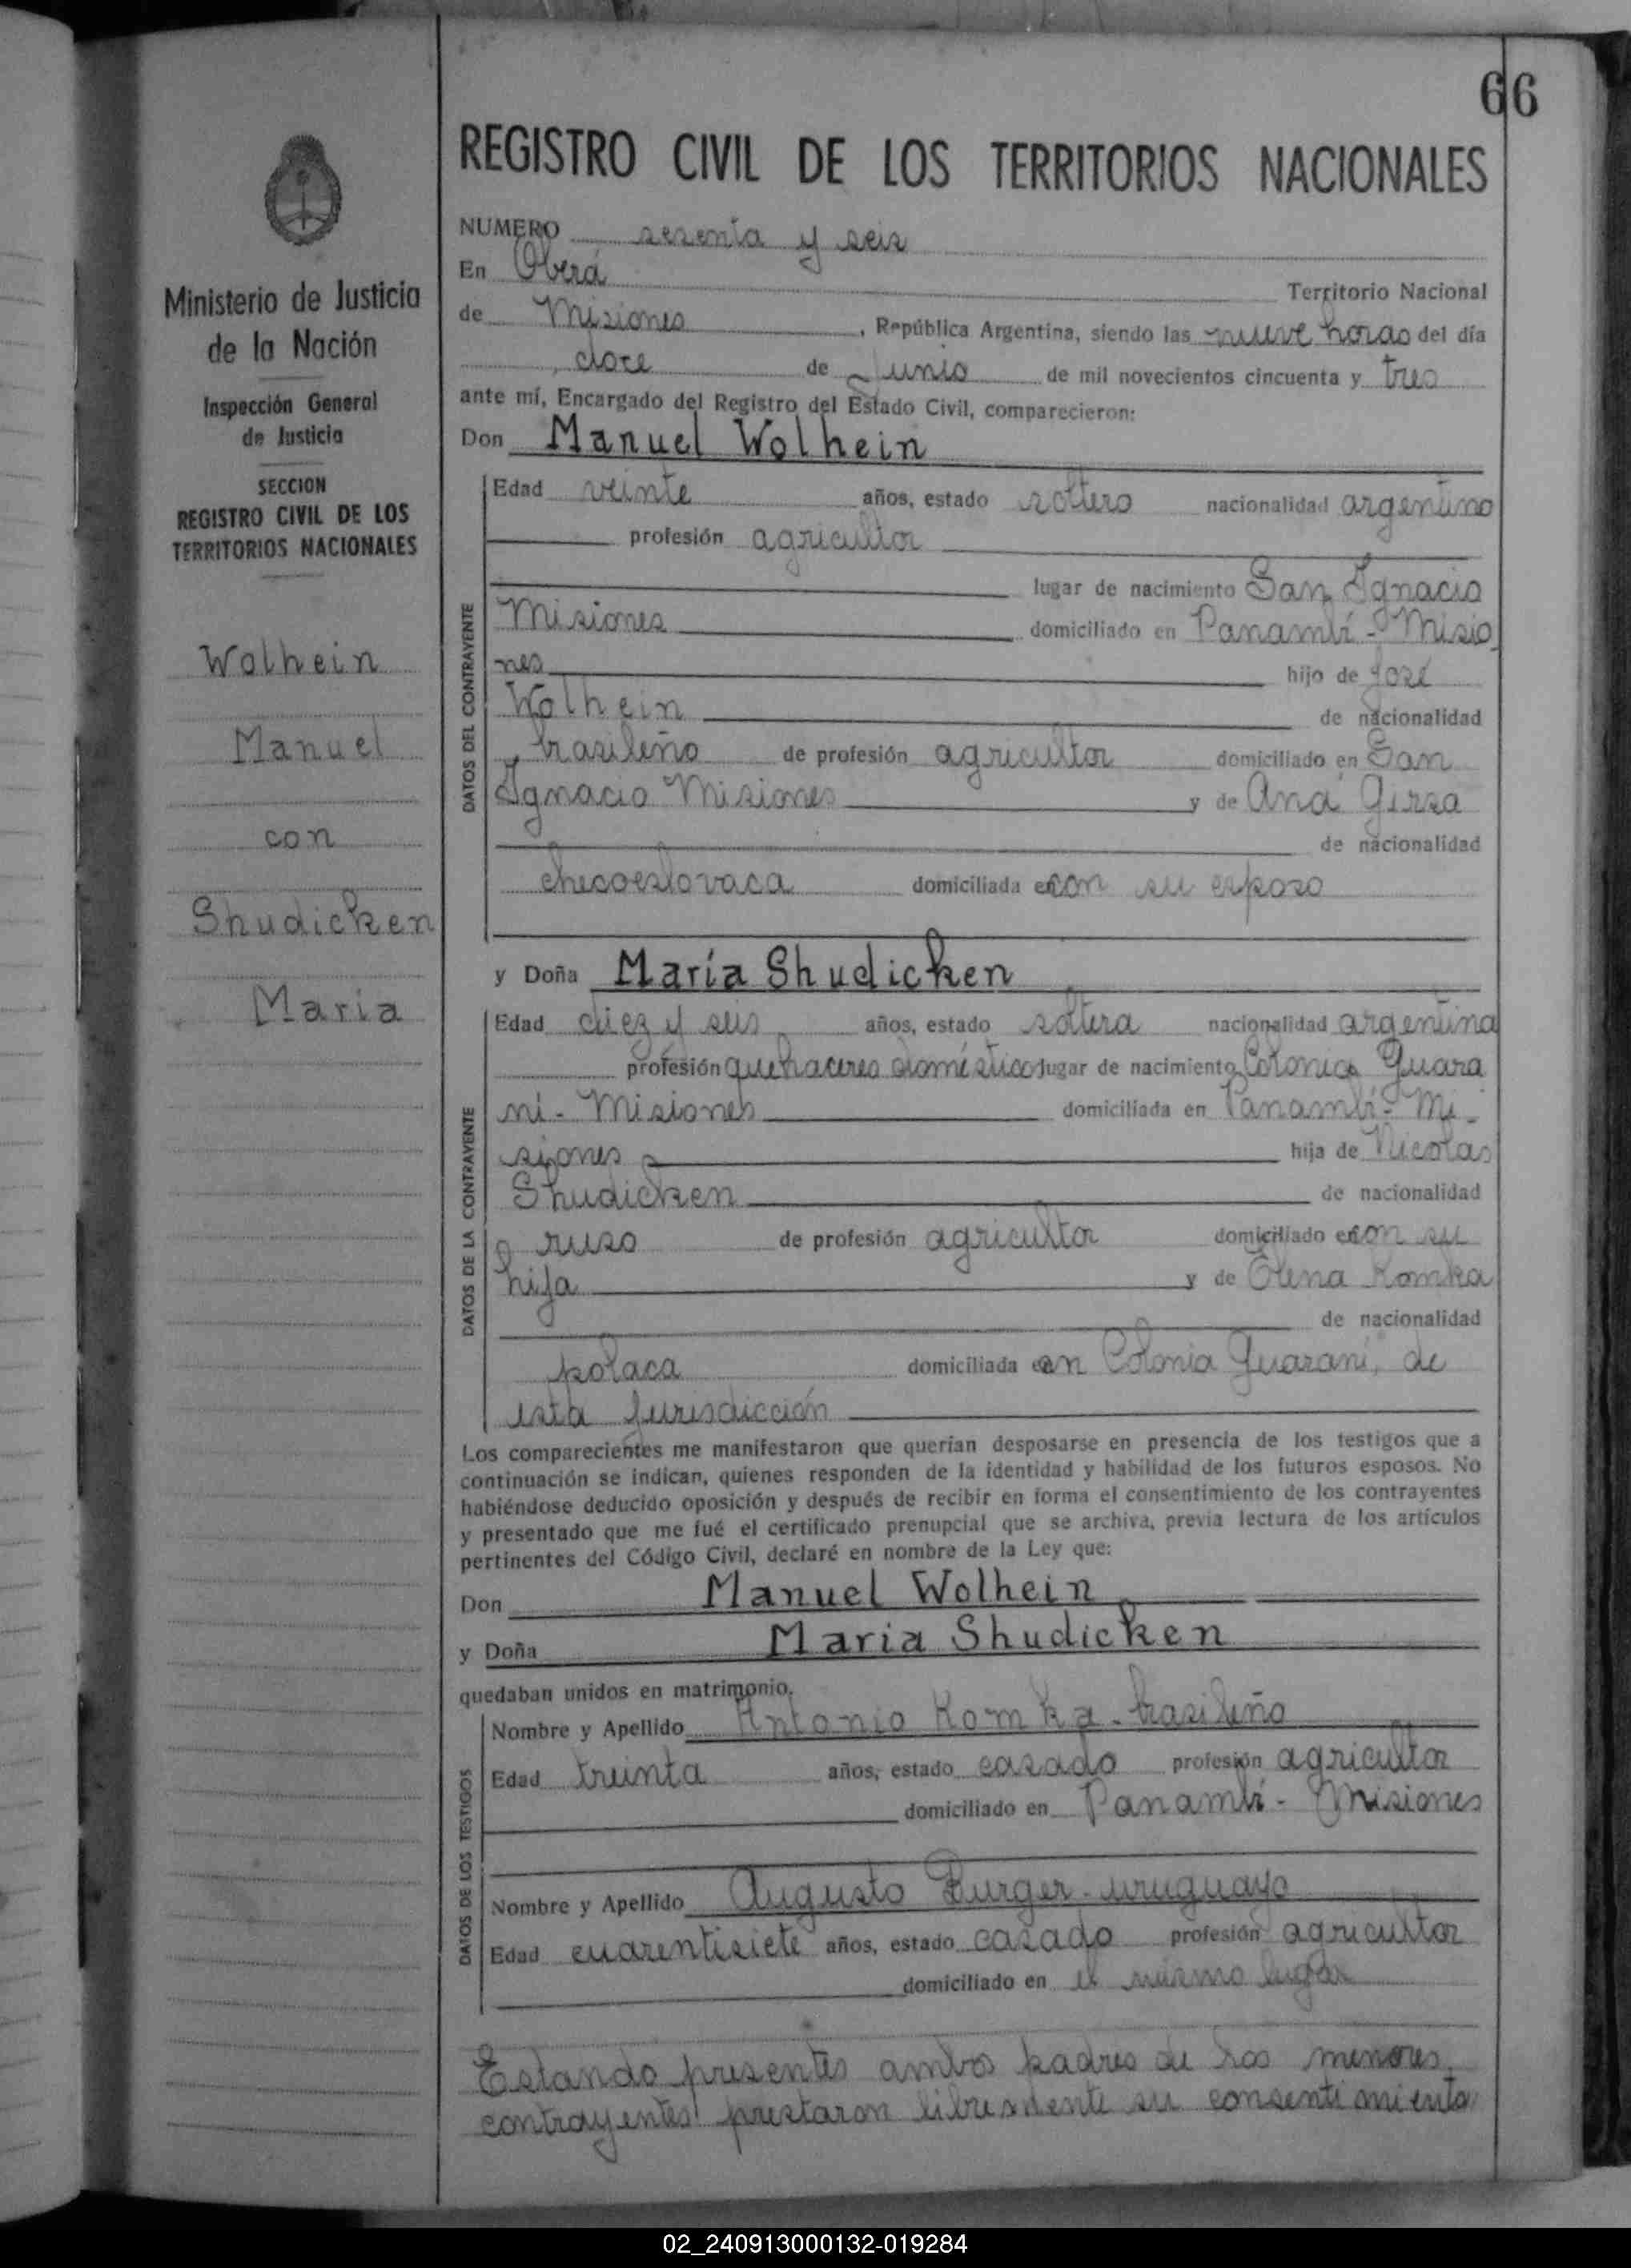 66
REGISTRO CIVIL DE LOS TERRITORIOS NACIONALES
Ministerio de Justicia
de la Nación
Inspección General
de Justicia
SECCION
REGISTRO CIVIL DE LOS
TERRITORIOS NACIONALES
Wolhein
Manuel
con
Shudicken
Maria
NUMERO sesenta y seis
En Oberá Territorio Nacional
de Misiones, República Argentina, siendo las nueve horas del día
doce de Junio de mil novecientos cincuenta y tres
ante mí, Encargado del Registro del Estado Civil, comparecieron:
Don Manuel Wolhein
DATOS DEL CONTRAYENTE
Edad veinte años, estado soltero nacionalidad argentino
profesión agricultor
lugar de nacimiento San Ignacio
Misiones domiciliado en Panambí - Misio
nes hijo de José
Wolhein de nacionalidad
brasileño de profesión agricultor domiciliado en San
Ignacio Misiones y de Ana Girsa
de nacionalidad
checoeslovaca domiciliada en con su esposo
y Doña María Shudicken
DATOS DE LA CONTRAYENTE
Edad diez y seis años, estado soltera nacionalidad argentina
profesión quehaceres domésticos lugar de nacimiento Colonia Guara
ní - Misiones domiciliada en Panambí - Mi
siones hija de Nicolas
Shudicken de nacionalidad
ruso de profesión agricultor domiciliado en con su
hija y de Olena Komka
de nacionalidad
polaca domiciliada en Colonia Guaraní, de
esta jurisdicción
Los comparecientes me manifestaron que querían desposarse en presencia de los testigos que a
continuación se indican, quienes responden de la identidad y habilidad de los futuros esposos. No
habiéndose deducido oposición y después de recibir en forma el consentimiento de los contrayentes
y presentado que me fué el certificado prenupcial que se archiva, previa lectura de los artículos
pertinentes del Código Civil, declaré en nombre de la Ley que:
Don Manuel Wolhein
y Doña Maria Shudicken
quedaban unidos en matrimonio.
DATOS DE LOS TESTIGOS
Nombre y Apellido Antonio Komka - brasileño
Edad treinta años, estado casado profesión agricultor
domiciliado en Panambí - Misiones
Nombre y Apellido Augusto Burger - uruguayo
Edad cuarentisiete años, estado casado profesión agricultor
domiciliado en el mismo lugar
Estando presentes ambos padres de los menores
contrayentes prestaron libremente su consentimiento
02_240913000132-019284